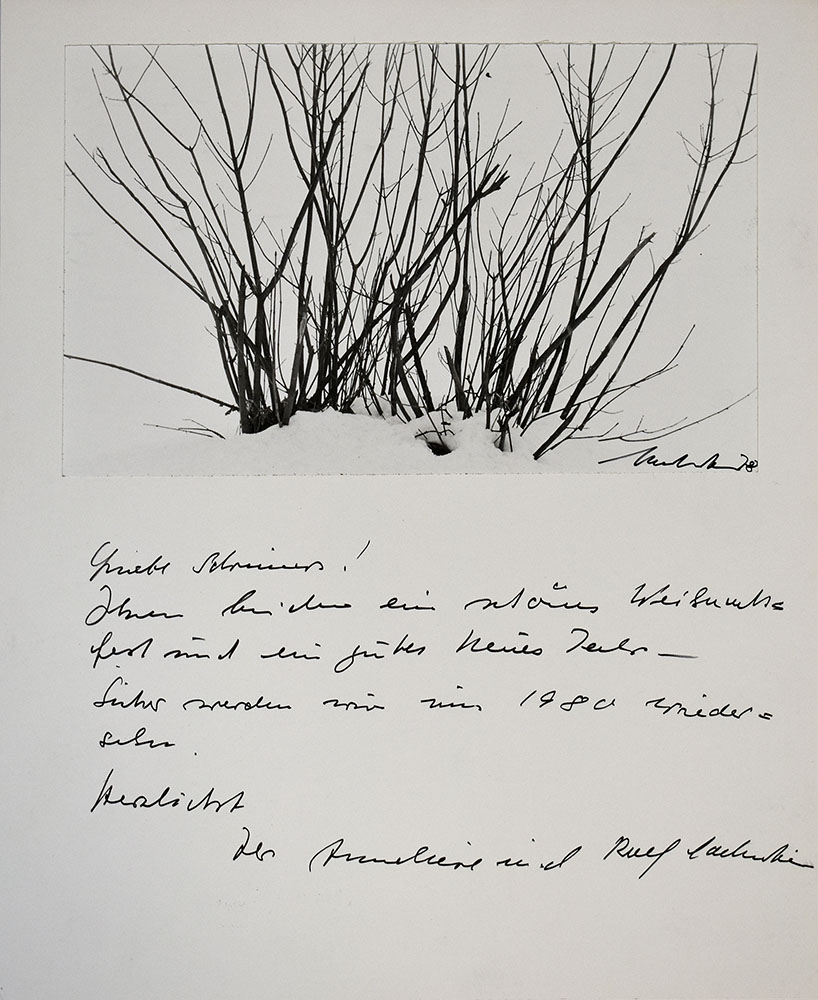 78
Liebe Schreiners!
Ihnen beiden ein schönes Weihnachts=
fest und ein gutes Neues Jahr —
Sicher werden wir uns 1980 wieder=
sehn.
Herzlichst
Ihr Anneliese und Rolf